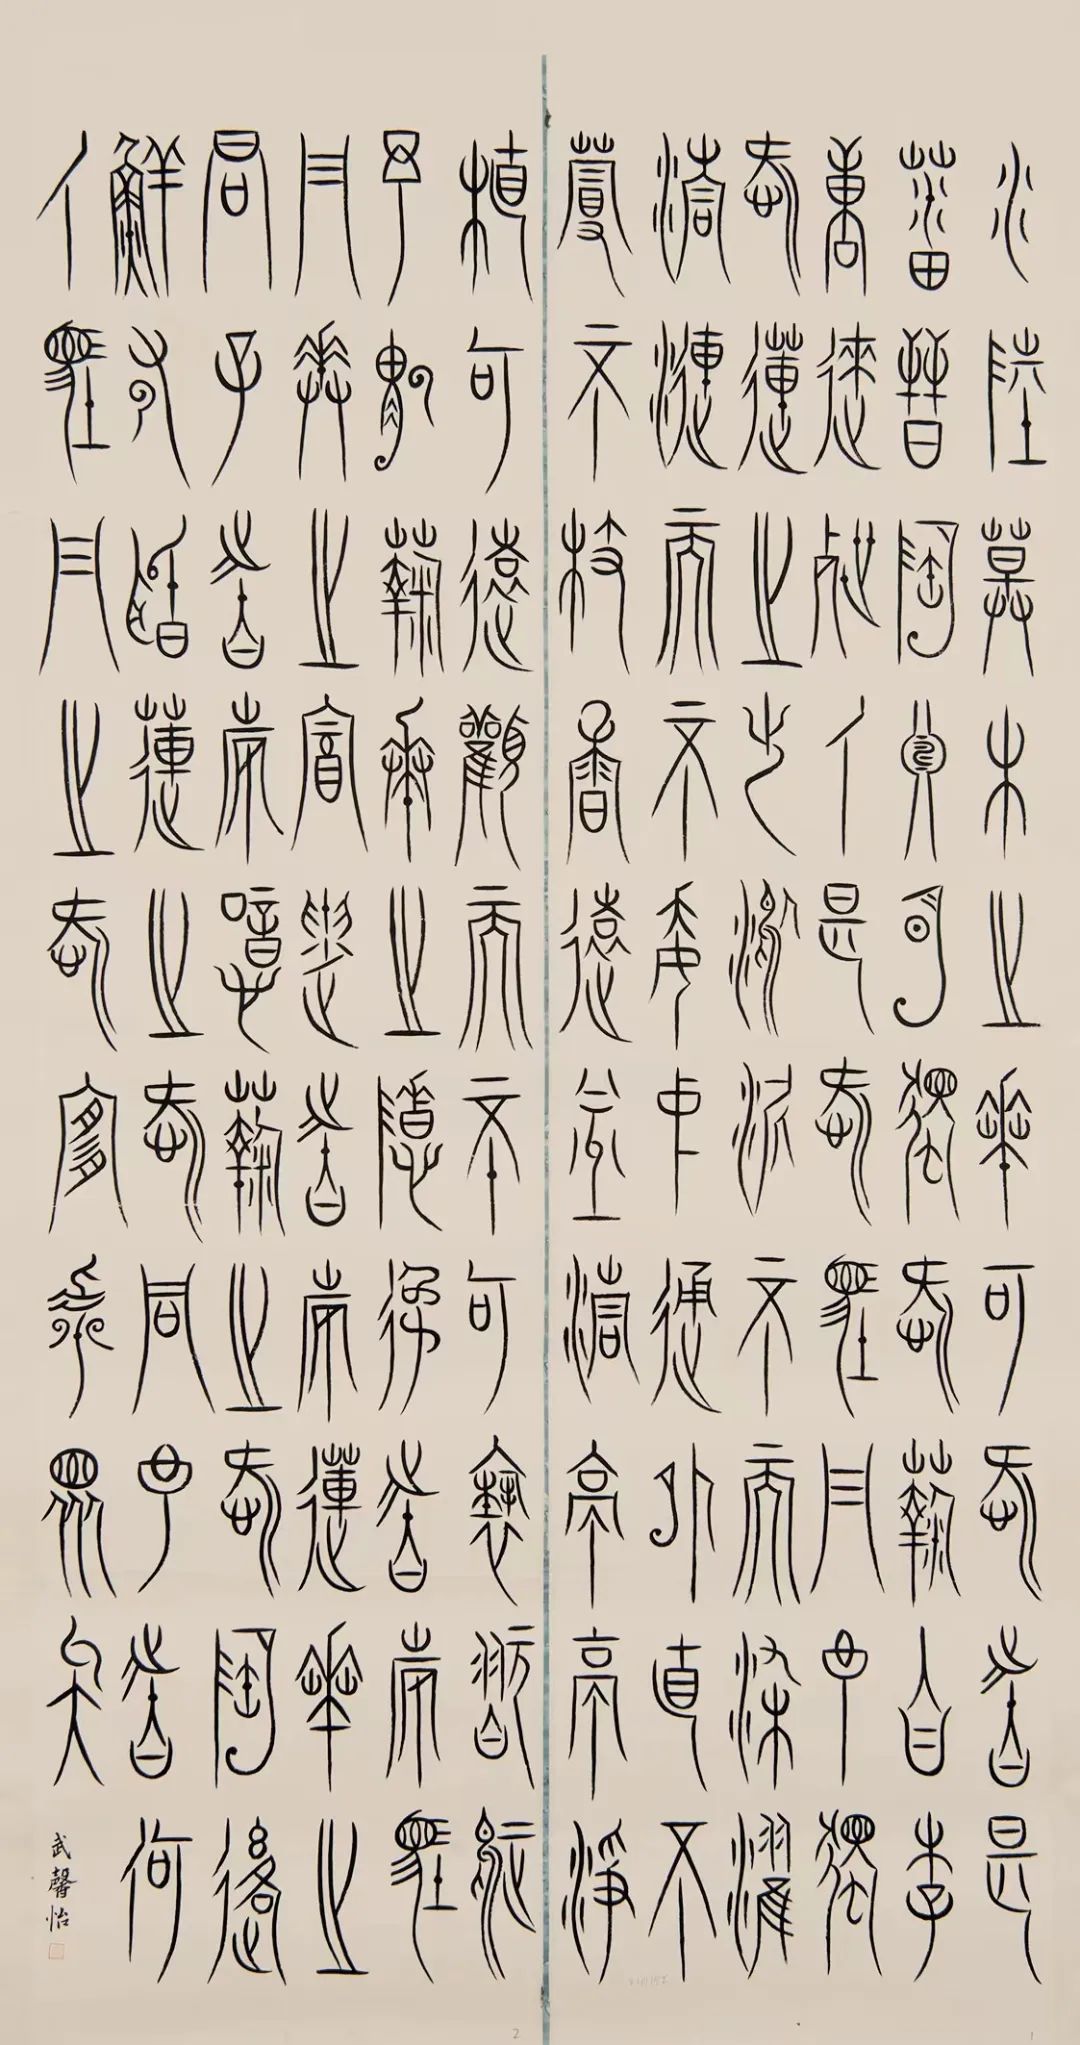 水陸草木之華可愛者甚
蕃晉陶淵明獨愛菊自李
唐來世人甚愛牡丹予獨
愛蓮之出淤泥不而染濯
清漣而不妖中通外直不
蔓不枝香遠益清亭亭淨
植可遠觀而不可褻翫焉
予謂菊華之隱逸者也牡
丹華之富貴者也蓮華之
君子者也噫菊之愛陶後
鮮有聞蓮之愛同予者何
人牡丹之愛宜乎眾矣
武馨怡